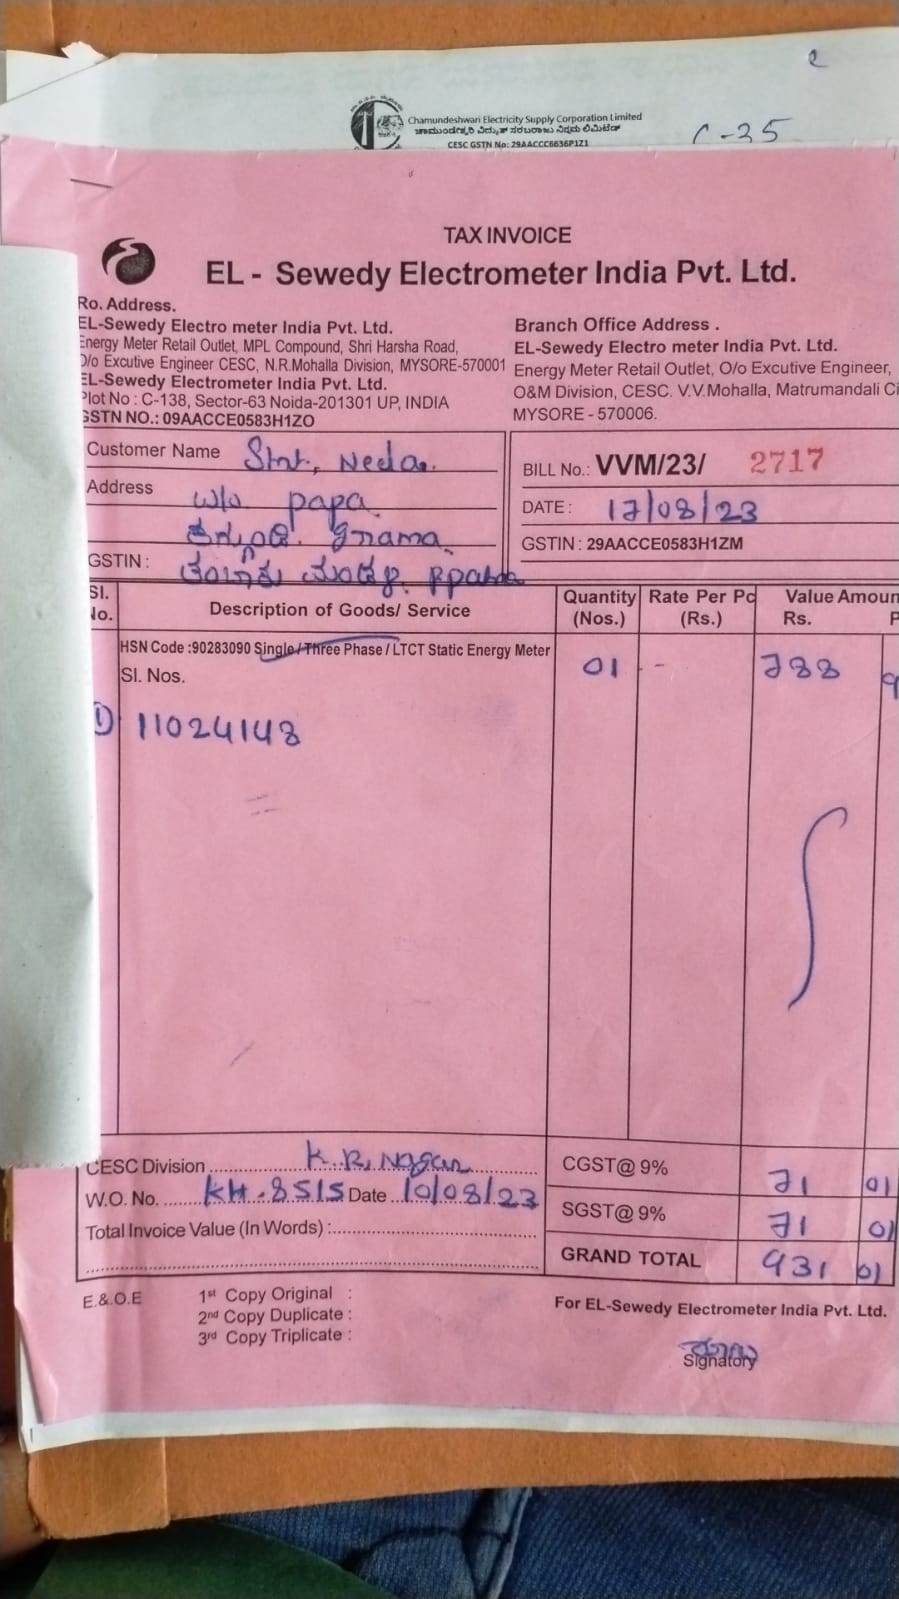 e
Chamundeshwari Electricity Supply Corporation Limited
ಚಾಮುಂಡೇಶ್ವರಿ ವಿದ್ಯುತ್ ಸರಬರಾಜು ನಿಗಮ ಲಿಮಿಟೆಡ್
CESC GSTN No: 29AACCC6636P1Z1
C-35
TAX INVOICE
EL - Sewedy Electrometer India Pvt. Ltd.
Ro. Address.
EL-Sewedy Electro meter India Pvt. Ltd.
Energy Meter Retail Outlet, MPL Compound, Shri Harsha Road,
O/o Excutive Engineer CESC, N.R.Mohalla Division, MYSORE-570001
EL-Sewedy Electrometer India Pvt. Ltd.
Plot No : C-138, Sector-63 Noida-201301 UP, INDIA
GSTN NO.: 09AACCE0583H1ZO
Branch Office Address .
EL-Sewedy Electro meter India Pvt. Ltd.
Energy Meter Retail Outlet, O/o Excutive Engineer,
O&M Division, CESC. V.V.Mohalla, Matrumandali Ci
MYSORE - 570006.
Customer Name Smt, Neela.
Address w/o papa.
grama.
GSTIN :
BILL No.: VVM/23/ 2717
DATE : 17/08/23
GSTIN : 29AACCE0583H1ZM
Sl. No. Description of Goods/ Service Quantity (Nos.) Rate Per Pc (Rs.) Value Amoun Rs. P
HSN Code :90283090 Single / Three Phase / LTCT Static Energy Meter 01 - 788 9
Sl. Nos.
1) 11024148
CESC Division K.R.Nagar CGST@ 9% 71 01
W.O. No. KH.8515 Date 10/08/23 SGST@ 9% 71 01
Total Invoice Value (In Words) : GRAND TOTAL 931 01
E.&.O.E
1st Copy Original :
2nd Copy Duplicate :
3rd Copy Triplicate :
For EL-Sewedy Electrometer India Pvt. Ltd.
Signatory